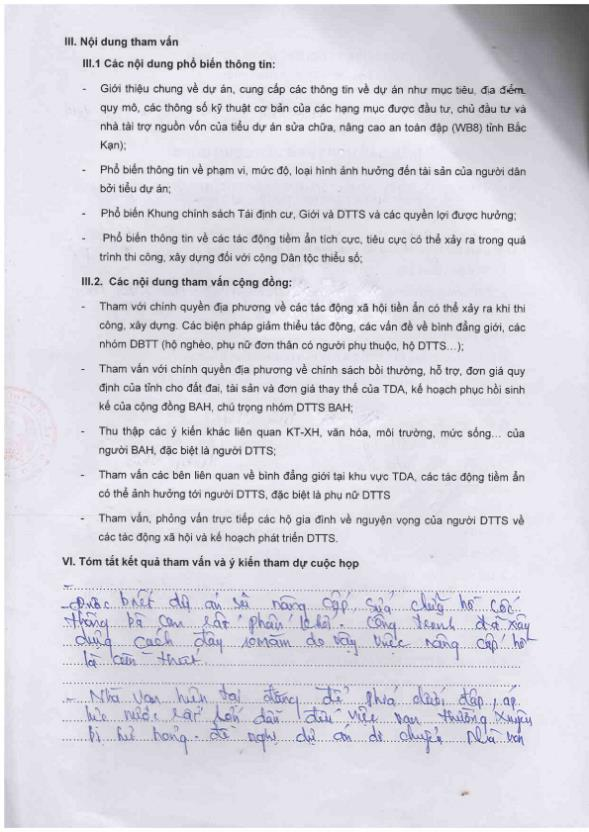 III. Nội dung tham vấn
III.1 Các nội dung phổ biến thông tin:
- Giới thiệu chung về dự án, cung cấp các thông tin về dự án như mục tiêu, địa điểm,
quy mô, các thông số kỹ thuật cơ bản của các hạng mục được đầu tư, chủ đầu tư và
nhà tài trợ nguồn vốn của tiểu dự án sửa chữa, nâng cao an toàn đập (WB8) tỉnh Bắc
Kạn);
- Phổ biến thông tin về phạm vi, mức độ, loại hình ảnh hưởng đến tài sản của người dân
bởi tiểu dự án;
- Phổ biến Khung chính sách Tái định cư, Giới và DTTS và các quyền lợi được hưởng;
- Phổ biến thông tin về các tác động tiềm ẩn tích cực, tiêu cực có thể xảy ra trong quá
trình thi công, xây dựng đối với cộng Dân tộc thiểu số;
III.2. Các nội dung tham vấn cộng đồng:
- Tham với chính quyền địa phương về các tác động xã hội tiền ẩn có thể xảy ra khi thi
công, xây dựng. Các biện pháp giảm thiểu tác động, các vấn đề về bình đẳng giới, các
nhóm DBTT (hộ nghèo, phụ nữ đơn thân có người phụ thuộc, hộ DTTS...);
- Tham vấn với chính quyền địa phương về chính sách bồi thường, hỗ trợ, đơn giá quy
định của tỉnh cho đất đai, tài sản và đơn giá thay thế của TDA, kế hoạch phục hồi sinh
kế của cộng đồng BAH, chú trọng nhóm DTTS BAH;
- Thu thập các ý kiến khác liên quan KT-XH, văn hóa, môi trường, mức sống... của
người BAH, đặc biệt là người DTTS;
- Tham vấn các bên liên quan về bình đẳng giới tại khu vực TDA, các tác động tiềm ẩn
có thể ảnh hưởng tới người DTTS, đặc biệt là phụ nữ DTTS
- Tham vấn, phỏng vấn trực tiếp các hộ gia đình về nguyện vọng của người DTTS về
các tác động xã hội và kế hoạch phát triển DTTS.
VI. Tóm tắt kết quả tham vấn và ý kiến tham dự cuộc họp
- Được biết dự án sẽ nâng cấp, sửa chữa hồ
bà con rất phấn khởi. Công trình đã xây
dựng cách đây do vậy việc nâng cấp hồ
là cần thiết
- Nhà van hiện tại đang để phía dưới đập, áp
lực nước rất lớn dẫn đến việc van thường xuyên
bị hư hỏng. đề nghị dự án di chuyển nhà van